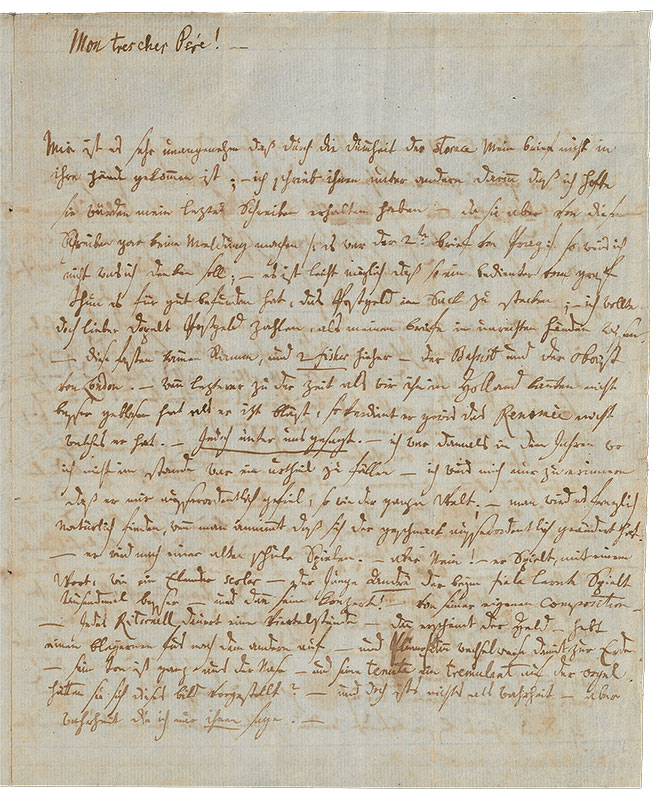 Mon tres cher Pére! —
Mir ist es sehr unangenehm daß durch die dummheit der Storace Mein brief nicht in
ihre hände gekommen ist; — ich schrieb ihnen unter andern darinn daß ich hofte
sie würden mein letztes Schreiben erhalten haben — da sie aber von diesem
Schreiben gar keine Meldung machen /: es war der 2:te brief von Prag :/ so weis ich
nicht was ich denken soll; — es ist leicht möglich daß so ein bedienter vom graf
thun es für gut befunden hat, das Postgeld im Sack zu stecken; — ich wollte
doch lieber doppelt Postgeld zahlen, als meinen briefe in unrechten händen wissen
— diese fasten kamen Ramm, und 2 fischer hieher — der Bassist und der Oboist
von London. — wenn letzterer zu der Zeit als wir ihn in Holland kannten nicht
besser geblasen hat als er izt bläst, so verdient er gewis das Renomèe nicht
welches er hat. — Jedoch unter uns gesagt. — ich war damals in dem Jahren wo
ich nicht im stande war ein urtheil zu fällen — ich weis mich nur zu erinnern
daß er mir ausserordentlich gefiel, so wie der ganzen Welt; — man wird es freylich
Natürlich finden, wenn man annimmt daß sich der geschmack ausserordentlich geändert hat.
— er wird nach einer alten schule Spielen. — aber Nein! — er Spielt, mit einem
Wort, wie ein Elender scolar — der Junge André der beym fiala lernte Spielt
tausendmal besser — und dann seine Conzerte! — von seiner eigenen Composition —
— Jedes Ritornell dauert eine Viertelstunde — dann erscheint der Held — hebt
einen bleyernen fus nach dem andern auf — und Plumst dann wechselweise damit zur Erde
— sein Ton ist ganz aus der Nase — und seine tenuta ein tremulant auf der orgel.
hätten sie sich dieses bild vorgestellt? — und doch ists nichts als wahrheit — aber
wahrheit die ich nur ihnen sage. —